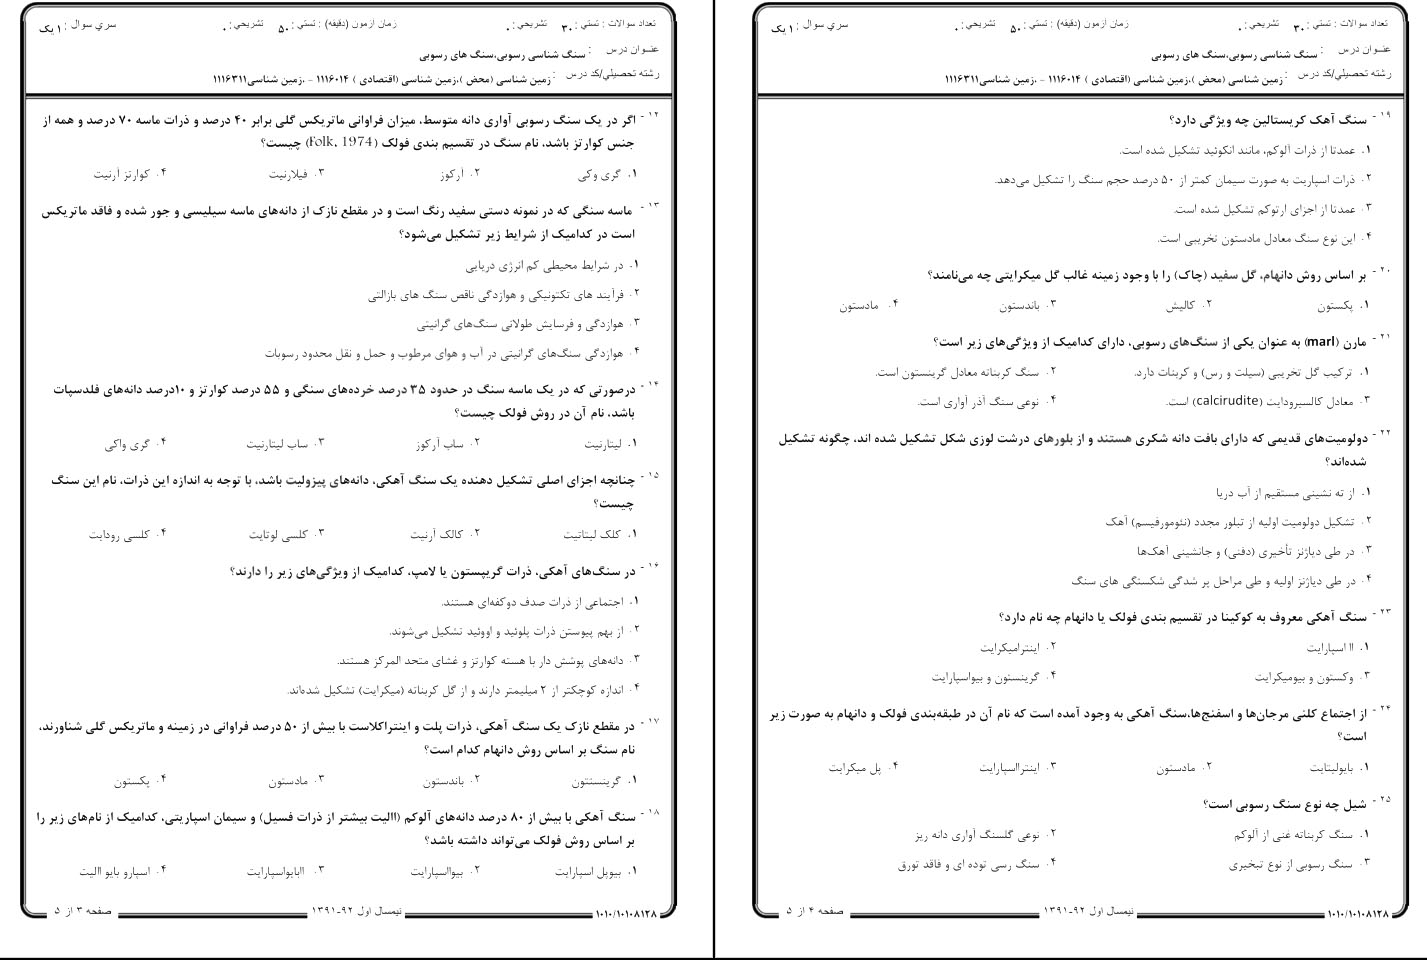 تعداد سوالات : تستي : ۳۰ تشريحي : ۰ زمان آزمون (دقيقه) : تستي : ۵۰ تشريحي : ۰ سري سوال : ۱ يک
عنــوان درس : سنگ شناسی رسوبی،سنگ های رسوبی
رشته تحصيلي/کد درس : زمین شناسی (محض )،زمین شناسی (اقتصادی ) ۱۱۱۶۰۱۴ - ،زمین شناسی۱۱۱۶۳۱۱
۱۲- اگر در یک سنگ رسوبی آواری دانه متوسط، میزان فراوانی ماتریکس گلی برابر ۴۰ درصد و ذرات ماسه ۷۰ درصد و همه از
جنس کوارتز باشد، نام سنگ در تقسیم بندی فولک (Folk, 1974) چیست؟
۱. گری وکی ۲. آرکوز ۳. فیلارنیت ۴. کوارتز آرنیت
۱۳- ماسه سنگی که در نمونه دستی سفید رنگ است و در مقطع نازک از دانه‌های ماسه سیلیسی و جور شده و فاقد ماتریکس
است در کدامیک از شرایط زیر تشکیل می‌شود؟
۱. در شرایط محیطی کم انرژی دریایی
۲. فرآیند های تکتونیکی و هوازدگی ناقص سنگ های بازالتی
۳. هوازدگی و فرسایش طولانی سنگ‌های گرانیتی
۴. هوازدگی سنگ‌های گرانیتی در آب و هوای مرطوب و حمل و نقل محدود رسوبات
۱۴- درصورتی که در یک ماسه سنگ در حدود ۳۵ درصد خرده‌های سنگی و ۵۵ درصد کوارتز و ۱۰درصد دانه‌های فلدسپات
باشد، نام آن در روش فولک چیست؟
۱. لیتارنیت ۲. ساب آرکوز ۳. ساب لیتارنیت ۴. گری واکی
۱۵- چنانچه اجزای اصلی تشکیل دهنده یک سنگ آهکی، دانه‌های پیزولیت باشد، با توجه به اندازه این ذرات، نام این سنگ
چیست؟
۱. کلک لیتاتیت ۲. کالک آرنیت ۳. کلسی لوتایت ۴. کلسی رودایت
۱۶- در سنگ‌های آهکی، ذرات گریپستون یا لامپ، کدامیک از ویژگی‌های زیر را دارند؟
۱. اجتماعی از ذرات صدف دوکفه‌ای هستند.
۲. از بهم پیوستن ذرات پلوئید و اووئید تشکیل می‌شوند.
۳. دانه‌های پوشش دار با هسته کوارتز و غشای متحد المرکز هستند.
۴. اندازه کوچکتر از ۲ میلیمتر دارند و از گل کربناته (میکرایت) تشکیل شده‌اند.
۱۷- در مقطع نازک یک سنگ آهکی، ذرات پلت و اینتراکلاست با بیش از ۵۰ درصد فراوانی در زمینه و ماتریکس گلی شناورند،
نام سنگ بر اساس روش دانهام کدام است؟
۱. گرینستئتون ۲. باندستون ۳. مادستون ۴. پکستون
۱۸- سنگ آهکی با بیش از ۸۰ درصد دانه‌های آلوکم (االیت بیشتر از ذرات فسیل) و سیمان اسپاریتی، کدامیک از نام‌های زیر را
بر اساس روش فولک می‌تواند داشته باشد؟
۱. بیوپل اسپارایت ۲. بیوااسپارایت ۳. اابایواسپارایت ۴. اسپارو بایو االیت
۱۰۱۰/۱۰۱۰۸۱۲۸ نیمسال اول ۹۲-۱۳۹۱ صفحه ۳ از ۵
تعداد سوالات : تستي : ۳۰ تشريحي : ۰ زمان آزمون (دقيقه) : تستي : ۵۰ تشريحي : ۰ سري سوال : ۱ يک
عنــوان درس : سنگ شناسی رسوبی،سنگ های رسوبی
رشته تحصيلي/کد درس : زمین شناسی (محض )،زمین شناسی (اقتصادی ) ۱۱۱۶۰۱۴ - ،زمین شناسی۱۱۱۶۳۱۱
۱۹- سنگ آهک کریستالین چه ویژگی دارد؟
۱. عمدتا از ذرات آلوکم، مانند انکوئید تشکیل شده است.
۲. ذرات اسپاریت به صورت سیمان کمتر از ۵۰ درصد حجم سنگ را تشکیل می‌دهد.
۳. عمدتا از اجزای ارتوکم تشکیل شده است.
۴. این نوع سنگ معادل مادستون تخریبی است.
۲۰- بر اساس روش دانهام، گل سفید (چاک) را با وجود زمینه غالب گل میکرایتی چه می‌نامند؟
۱. پکستون ۲. کالیش ۳. باندستون ۴. مادستون
۲۱- مارن (marl) به عنوان یکی از سنگ‌های رسوبی، دارای کدامیک از ویژگی‌های زیر است؟
۱. ترکیب گل تخریبی (سیلت و رس) و کربنات دارد. ۲. سنگ کربناته معادل گرینستون است.
۳. معادل کالسیرودایت (calcirudite) است. ۴. نوعی سنگ آذر آواری است.
۲۲- دولومیت‌های قدیمی که دارای بافت دانه شکری هستند و از بلورهای درشت لوزی شکل تشکیل شده اند، چگونه تشکیل
شده‌اند؟
۱. از ته نشینی مستقیم از آب دریا
۲. تشکیل دولومیت اولیه از تبلور مجدد (نئومورفیسم) آهک
۳. در طی دیاژنز تأخیری (دفنی) و جانشینی آهک‌ها
۴. در طی دیاژنز اولیه و طی مراحل پر شدگی شکستگی های سنگ
۲۳- سنگ آهکی معروف به کوکینا در تقسیم بندی فولک یا دانهام چه نام دارد؟
۱. اا اسپارایت ۲. اینترامیکرایت
۳. وکستون و بیومیکرایت ۴. گرینستون و بیواسپارایت
۲۴- از اجتماع کلنی مرجان‌ها و اسفنج‌ها،سنگ آهکی به وجود آمده است که نام آن در طبقه‌بندی فولک و دانهام به صورت زیر
است؟
۱. بایولیتایت ۲. مادستون ۳. اینترااسپارایت ۴. پل میکرایت
۲۵- شیل چه نوع سنگ رسوبی است؟
۱. سنگ کربناته غنی از آلوکم ۲. نوعی گلسنگ آواری دانه ریز
۳. سنگ رسوبی از نوع تبخیری ۴. سنگ رسی توده ای و فاقد تورق
۱۰۱۰/۱۰۱۰۸۱۲۸ نیمسال اول ۹۲-۱۳۹۱ صفحه ۴ از ۵